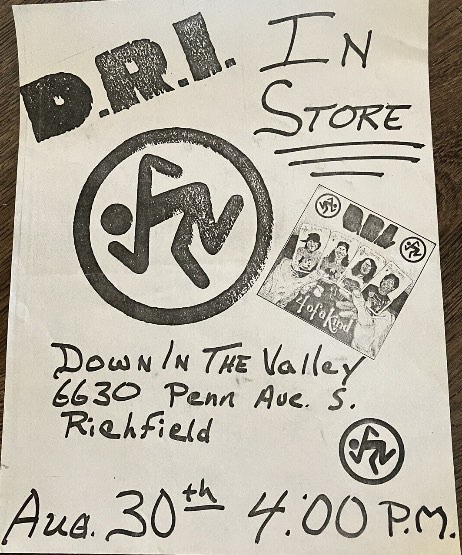 D.R.I.
IN
STORE
D.R.I.
4 of a Kind
DOWN IN THE Valley
6630 Penn Ave. S.
Richfield
Aug. 30th 4:00 P.M.